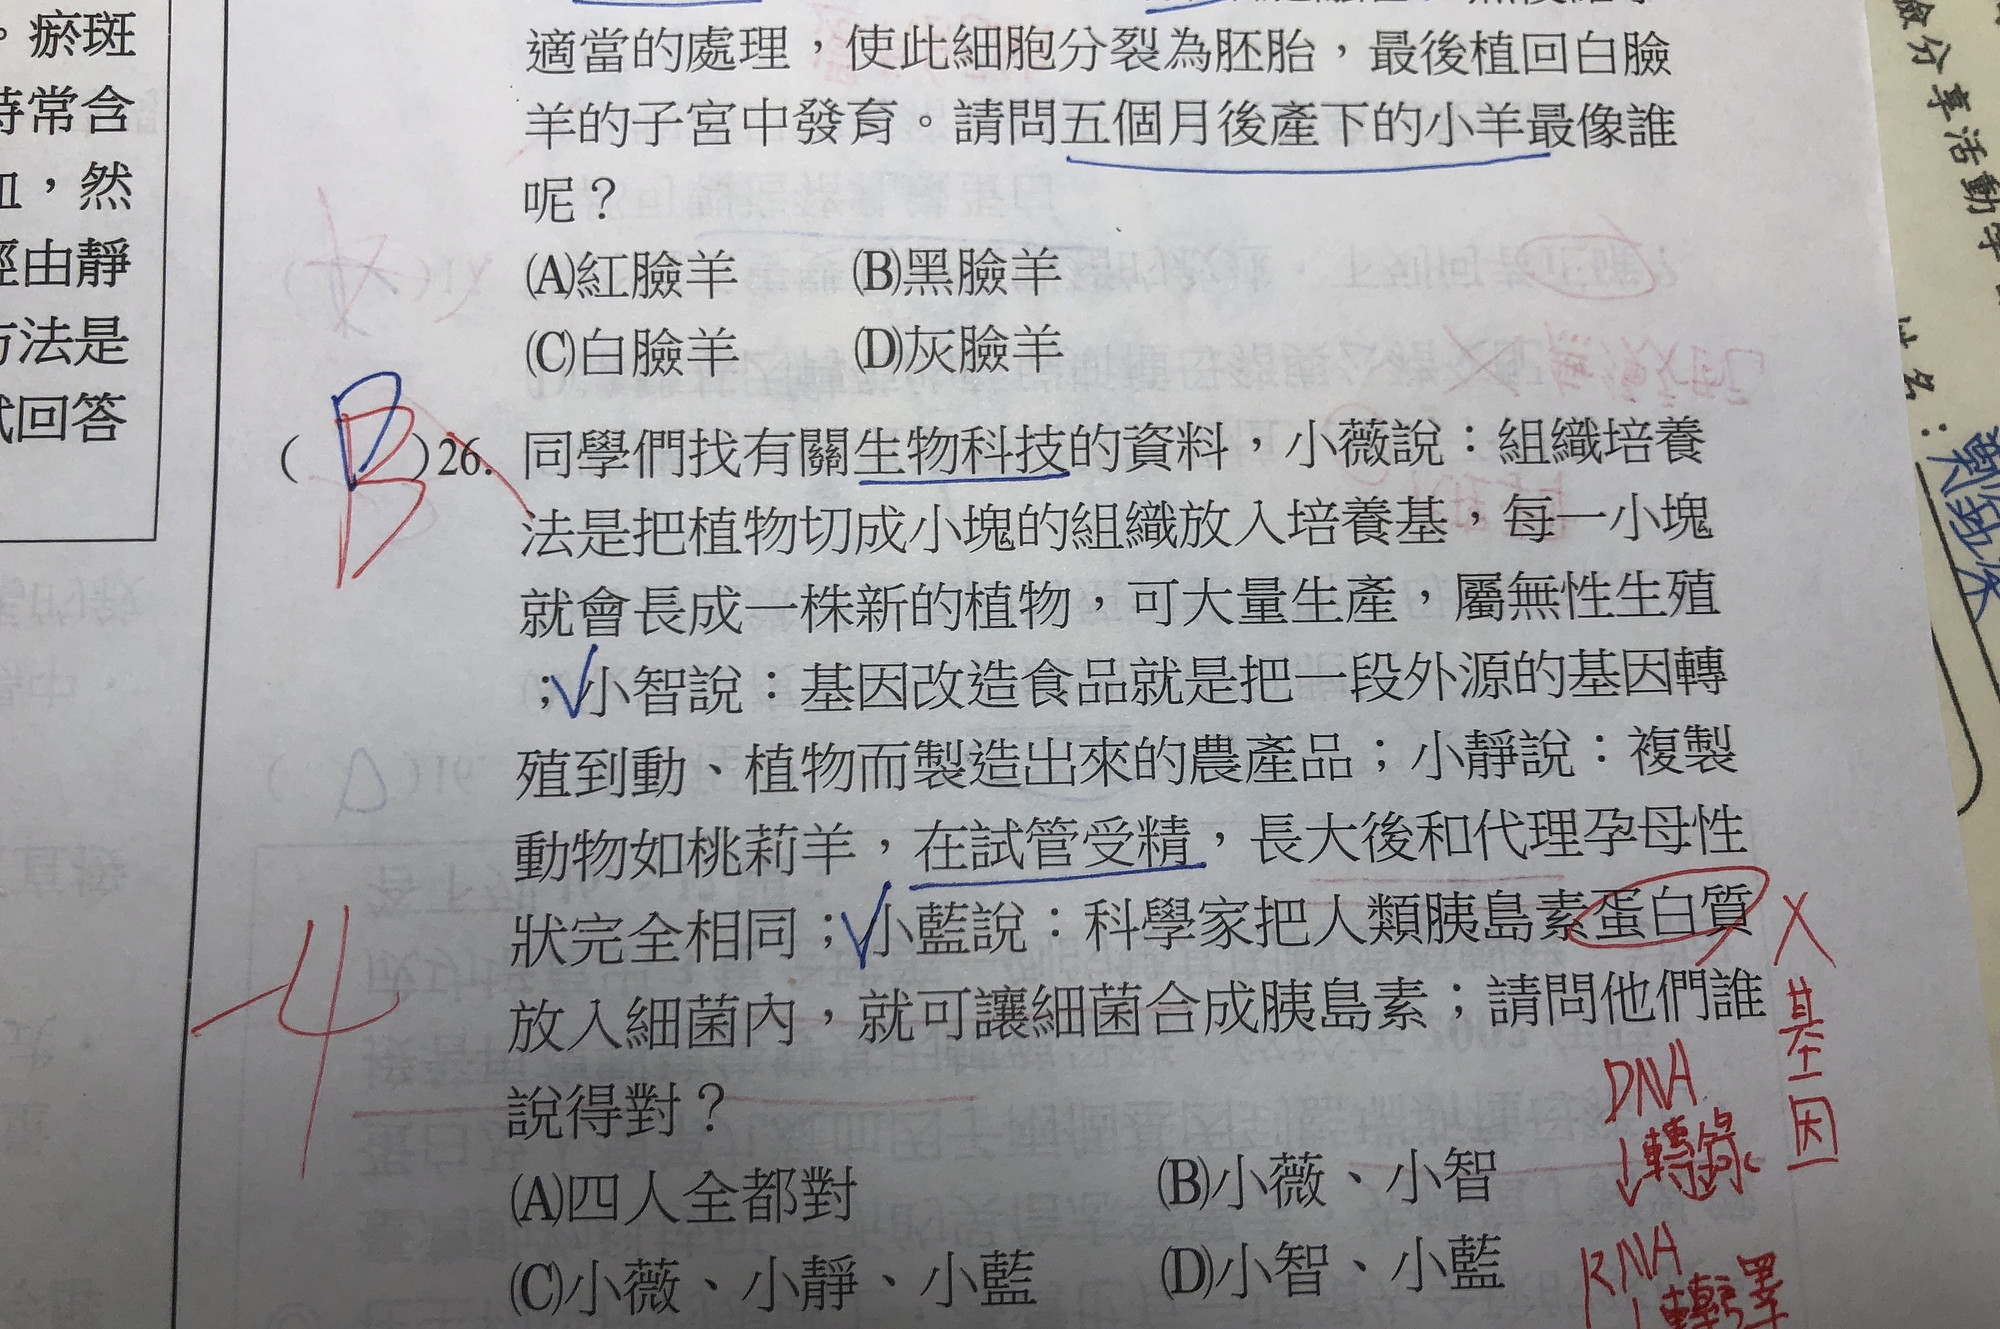 。瘀斑
時常含
血，然
經由靜
方法是
試回答
適當的處理，使此細胞分裂為胚胎，最後植回白臉
羊的子宮中發育。請問五個月後產下的小羊最像誰
呢？
(A)紅臉羊 (B)黑臉羊
(C)白臉羊 (D)灰臉羊
(B)26. 同學們找有關生物科技的資料，小薇說：組織培養
法是把植物切成小塊的組織放入培養基，每一小塊
就會長成一株新的植物，可大量生產，屬無性生殖
；小智說：基因改造食品就是把一段外源的基因轉
殖到動、植物而製造出來的農產品；小靜說：複製
動物如桃莉羊，在試管受精，長大後和代理孕母性
狀完全相同；小藍說：科學家把人類胰島素蛋白質
放入細菌內，就可讓細菌合成胰島素；請問他們誰
說得對？
(A)四人全都對 (B)小薇、小智
(C)小薇、小靜、小藍 (D)小智、小藍
-4
X
基因
DNA
↓轉錄
RNA
↓轉譯
驗分享活動學
姓名：